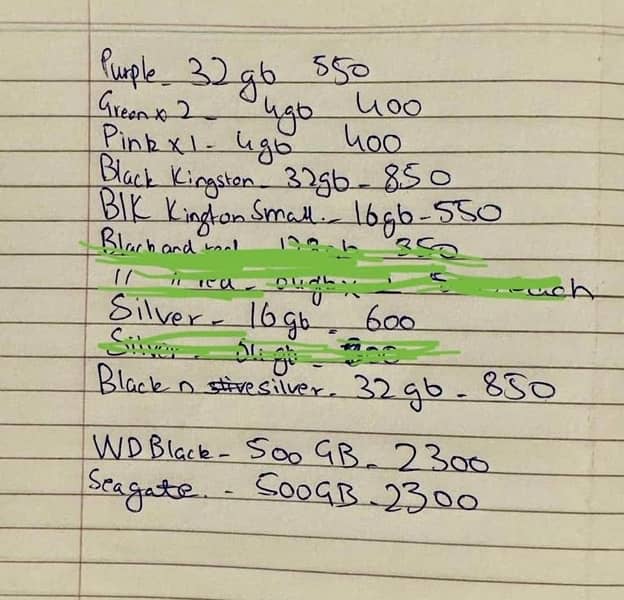 Purple - 32gb 550
Green x 2 - 4gb 400
Pink x 1 - 4gb 400
Black Kingston - 32gb - 850
Blk Kington Small. - 16gb - 550
Black and 350
Silver - 16gb - 600
Silver - gb -
Black n silver - 32gb - 850
WD Black - 500 GB - 2300
Seagate. - 500GB - 2300